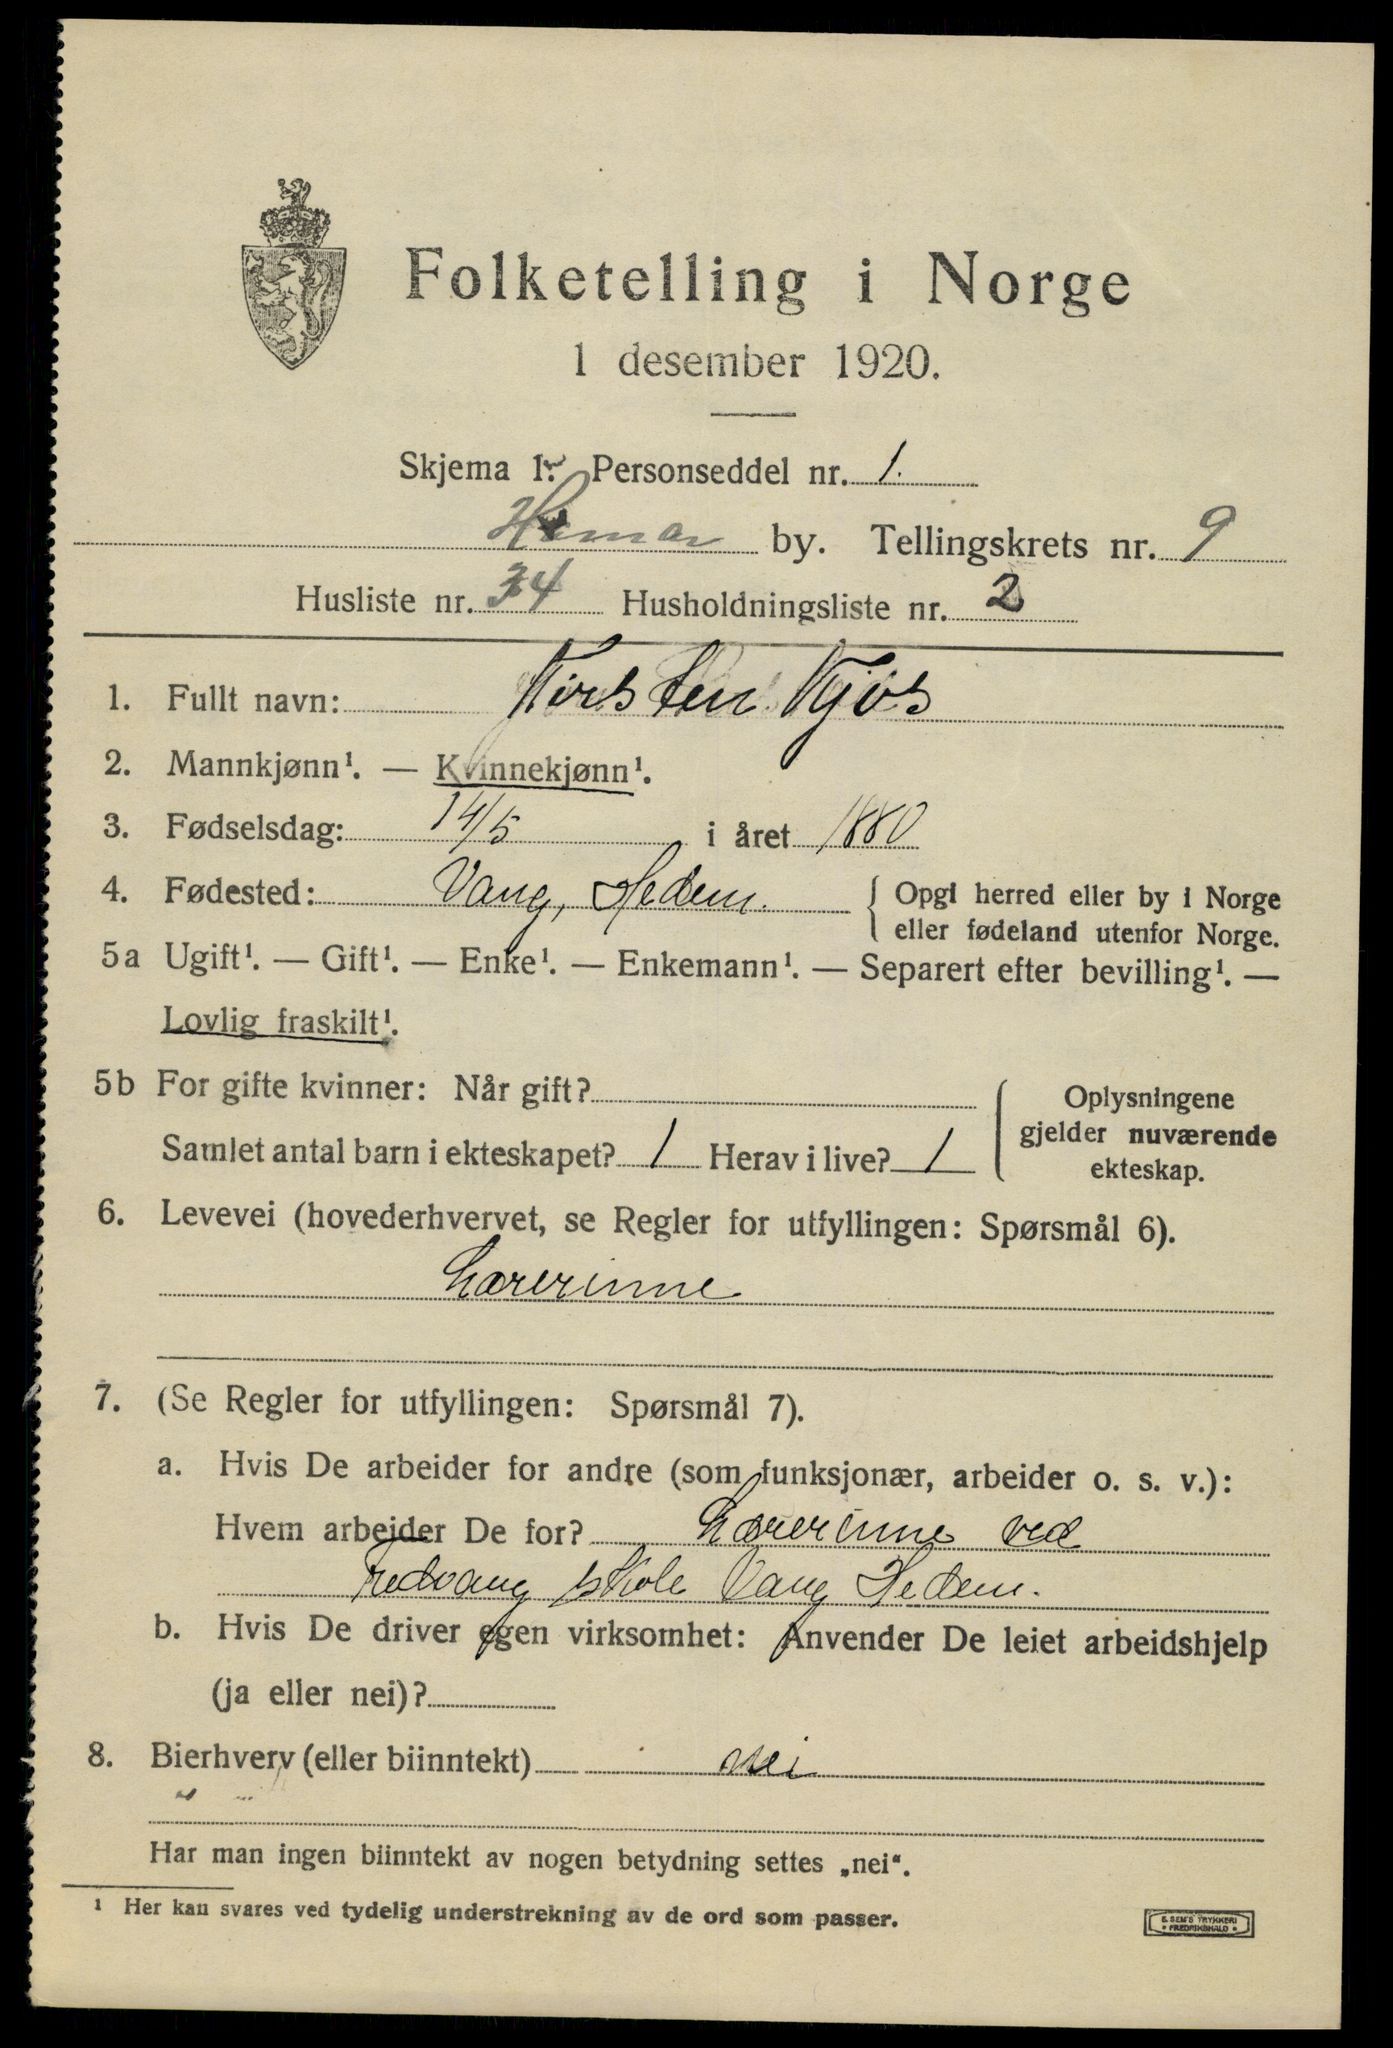 Folketelling i Norge
1 desember 1920.
Skjema 1. Personseddel nr. 1.
Hamar by. Tellingskrets nr. 9
Husliste nr. 34 Husholdningsliste nr. 2
1. Fullt navn: Kirsten Kjos
2. Mannkjønn¹. — Kvinnekjønn¹.
3. Fødselsdag: 14/5 i året 1880
4. Fødested: Vang, Hedem. { Opgi herred eller by i Norge
eller fødeland utenfor Norge.
5a Ugift¹. — Gift¹. — Enke¹. — Enkemann¹. — Separert efter bevilling¹. —
Lovlig fraskilt¹.
5b For gifte kvinner: Når gift? { Oplysningene
gjelder nuværende
Samlet antal barn i ekteskapet? 1 Herav i live? 1
ekteskap.
6. Levevei (hovederhvervet, se Regler for utfyllingen: Spørsmål 6).
Lærerinne
7. (Se Regler for utfyllingen: Spørsmål 7).
a. Hvis De arbeider for andre (som funksjonær, arbeider o. s. v.):
Hvem arbeider De for? Lærerinne ved
Fredvang skole Vang Hedem.
b. Hvis De driver egen virksomhet: Anvender De leiet arbeidshjelp
(ja eller nei)?
8. Bierhverv (eller biinntekt) nei
Har man ingen biinntekt av nogen betydning settes „nei“.
¹ Her kan svares ved tydelig understrekning av de ord som passer.
E. SEM'S TRYKKERI
• FREDRIKSHALD •